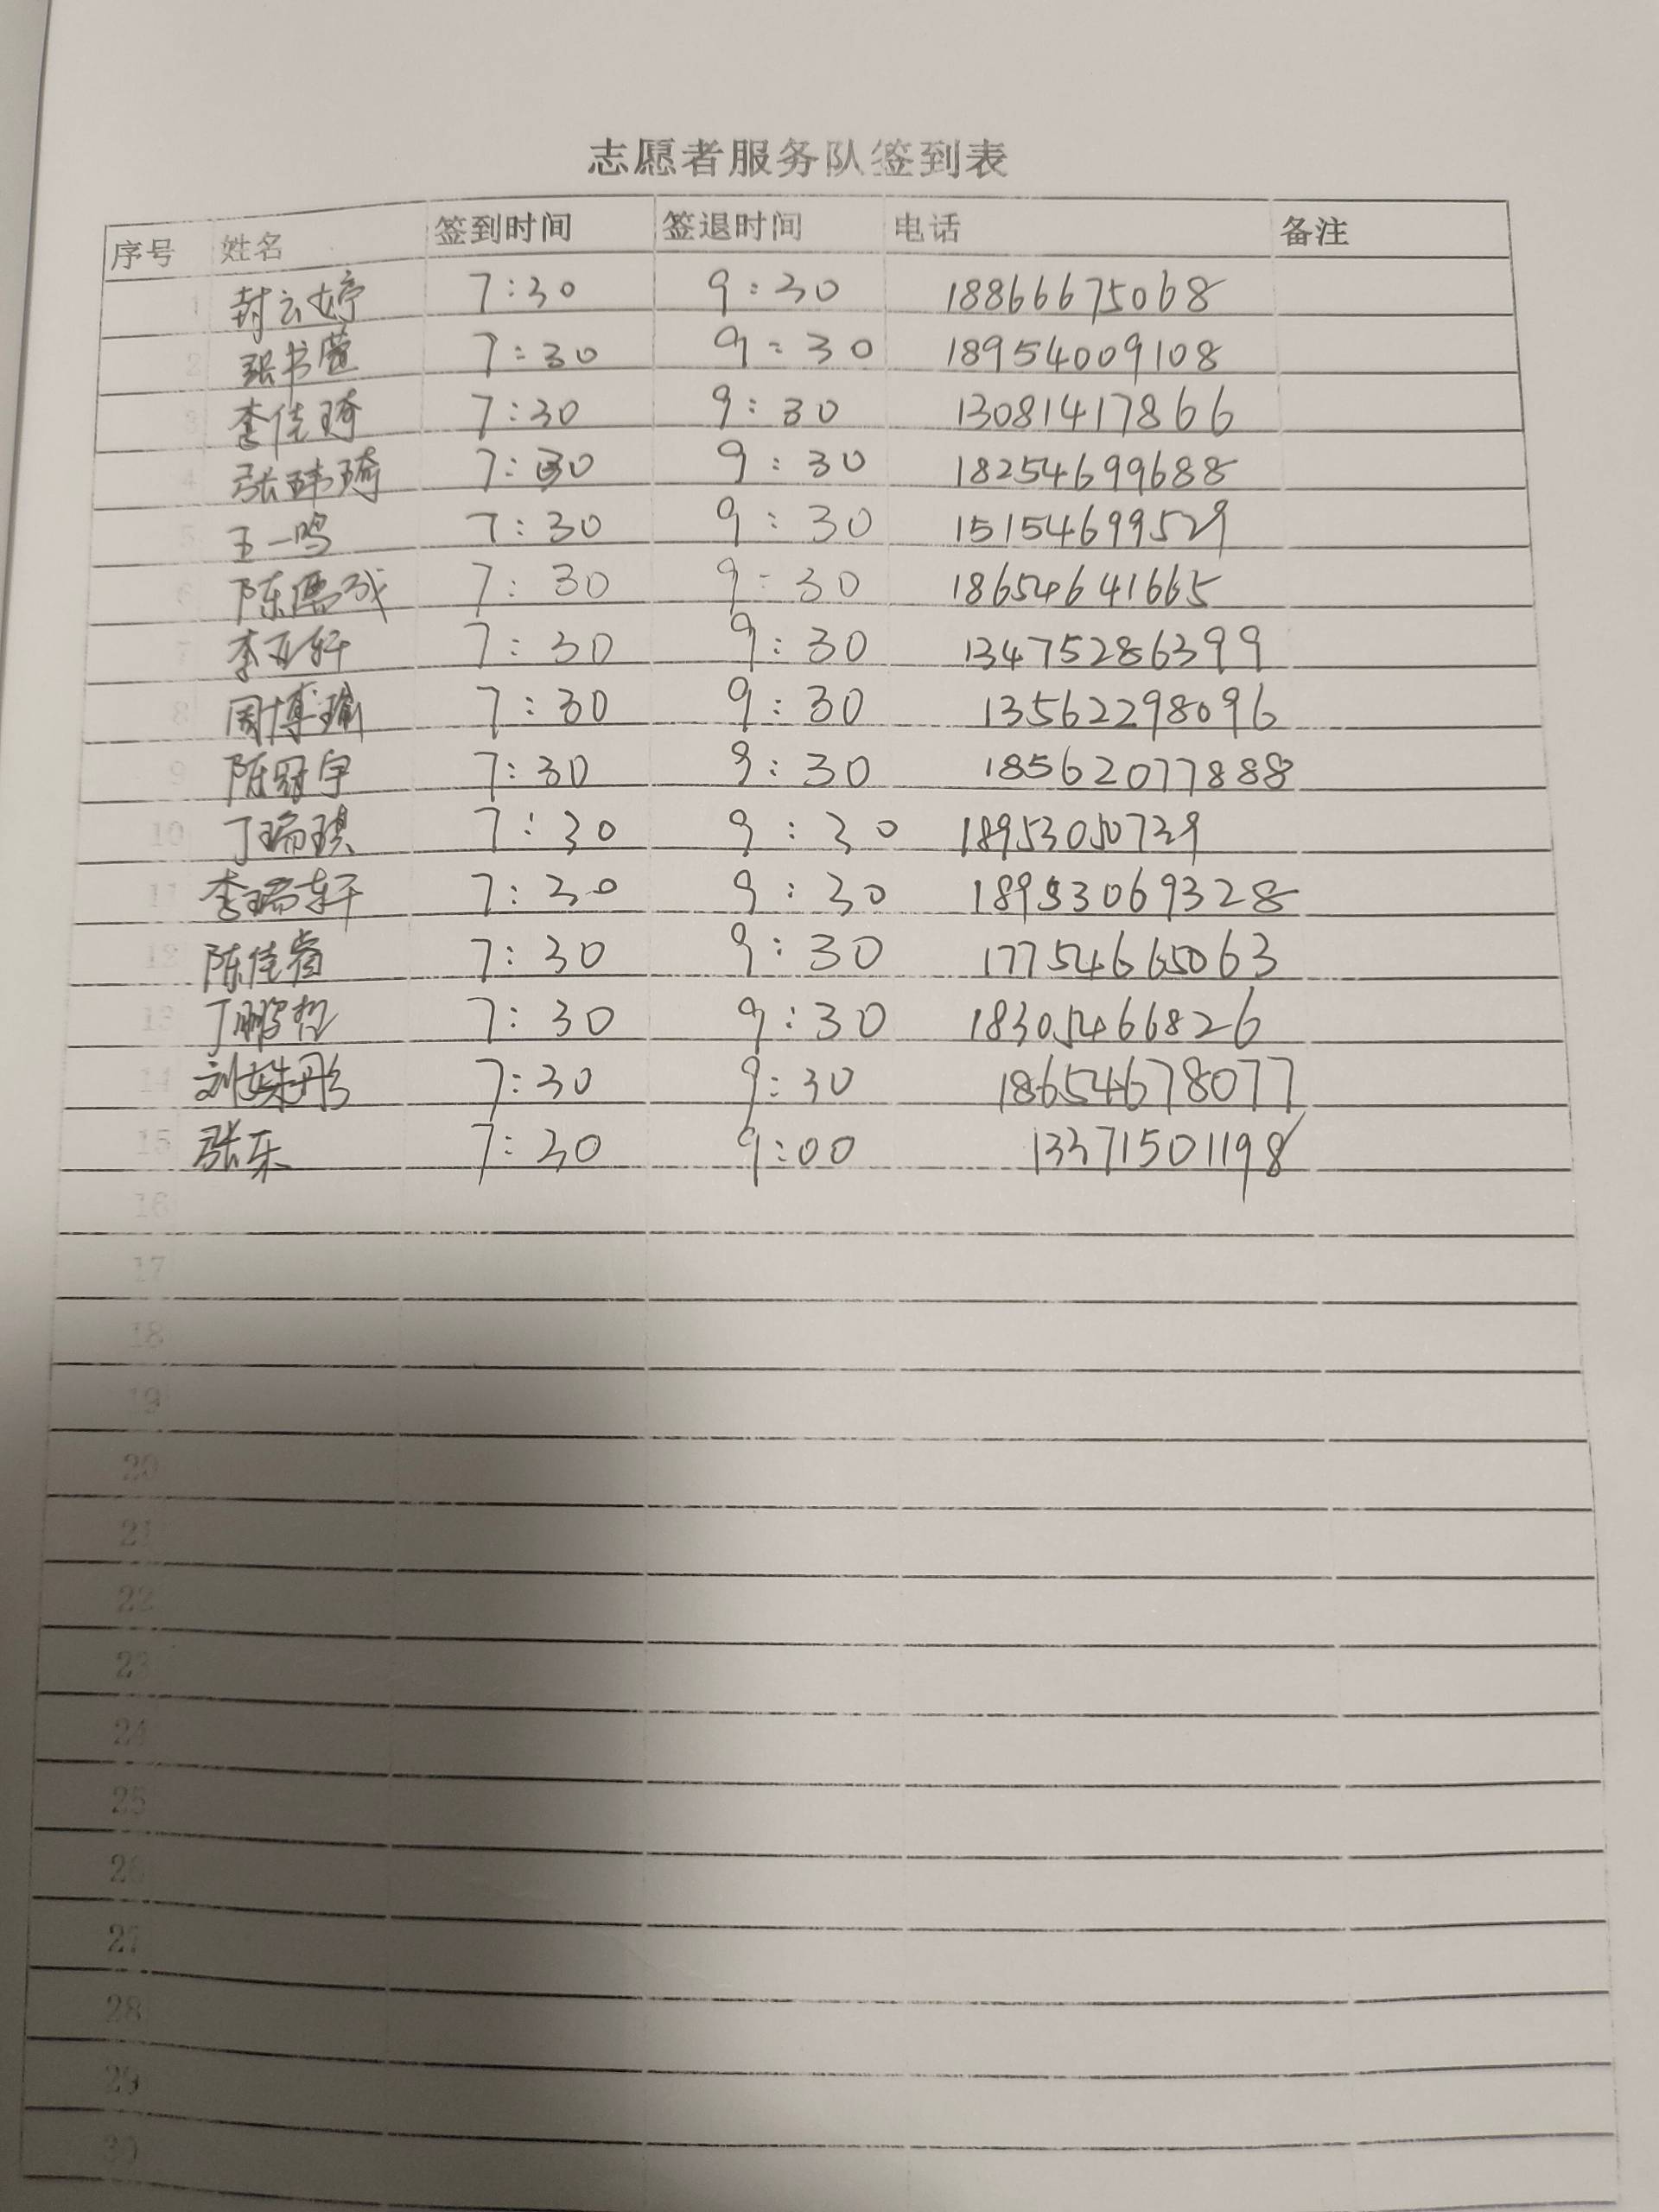 志愿者服务队签到表
序号 姓名 签到时间 签退时间 电话 备注
1 封云婷 7:30 9:30 18866675068
2 张书萱 7:30 9:30 18954009108
3 李佳琦 7:30 9:30 13081417866
4 张玮琦 7:30 9:30 18254699688
5 王一鸣 7:30 9:30 15154699529
6 陈儒成 7:30 9:30 18654641665
7 李亚轩 7:30 9:30 13475286399
8 周博瑜 7:30 9:30 13562298096
9 陈冠宇 7:30 9:30 18562077888
10 丁瑞琪 7:30 9:30 18953050739
11 李瑞轩 7:30 9:30 18953069328
12 陈佳睿 7:30 9:30 17754665063
13 丁鹏哲 7:30 9:30 18305466826
14 刘姝彤 7:30 9:30 18654678077
15 张乐 7:30 9:00 13371501198
16
17
18
19
20
21
22
23
24
25
26
27
28
29
30